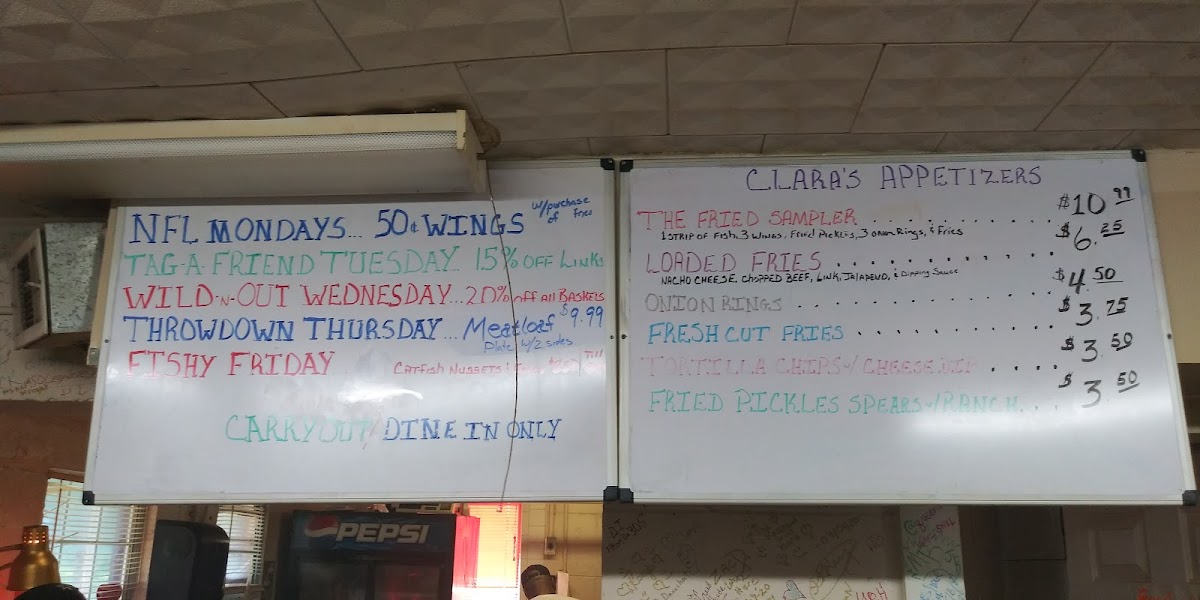 NFL MONDAYS... 50¢ WINGS w/purchase of fries
TAG-A-FRIEND TUESDAY. 15% OFF LINKS
WILD-N-OUT WEDNESDAY...20% off All BASKETS
THROWDOWN THURSDAY... Meatloaf $9.99
Plate w/2 sides
FISHY FRIDAY CATFISH NUGGETS
CARRYOUT/DINE IN ONLY
CLARA'S APPETIZERS
THE FRIED SAMPLER . . . . . . . . . . . $10.99
1 STRIP OF FISH, 3 WINGS, FRIED PICKLES, 3 ONION RINGS, & FRIES
LOADED FRIES . . . . . . . . . . . $6.25
NACHO CHEESE, CHOPPED BEEF, LINK, JALAPENO, & DIPPING SAUCE
ONION RINGS . . . . . . . . . . . $4.50
FRESH CUT FRIES . . . . . . . . . . . $3.75
TORTILLA CHIPS w/ CHEESE DIP . . . . $3.50
FRIED PICKLES SPEARS w/RANCH. . . $3.50
PEPSI